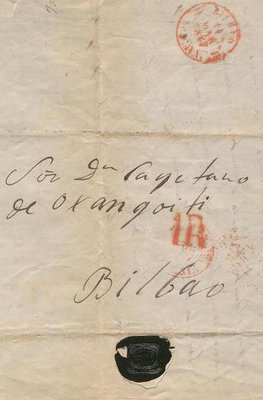 Sor Dn Cayetano
de Oxangoiti
1R
Bilbao